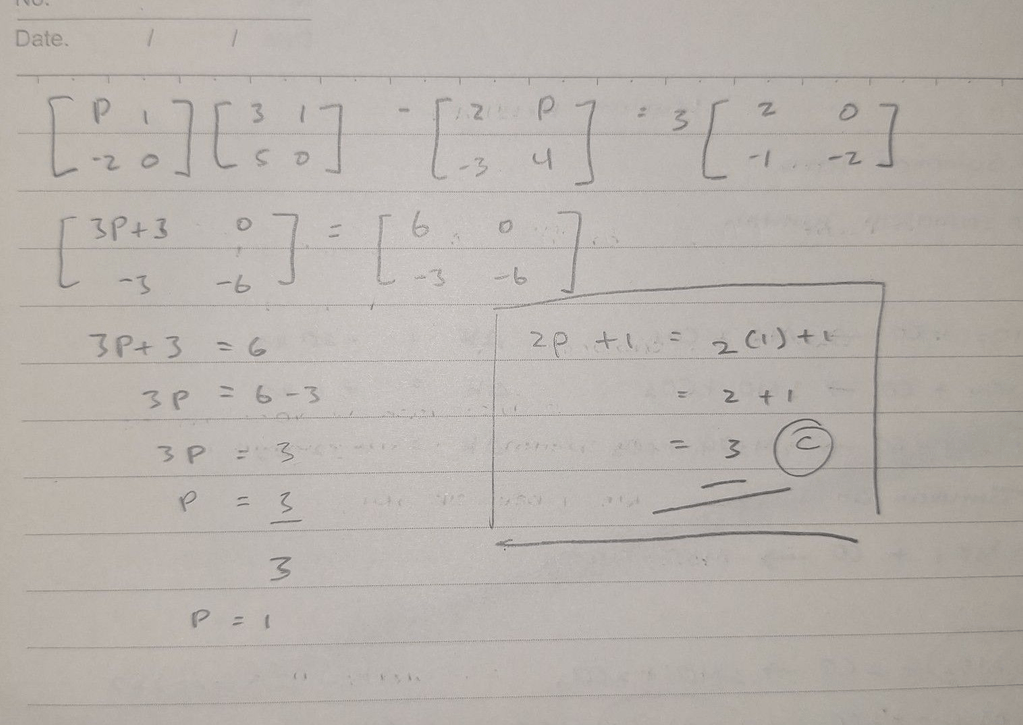 No.
Date. / /
[P 1 -2 0] [3 1 5 0] - [2 P -3 4] = 3 [2 0 -1 -2]
[3P+3 0 -3 -6] = [6 0 -3 -6]
3P+3 = 6
3P = 6-3
3P = 3
P = 3
3
P = 1
2P + 1 = 2(1)+1
= 2 + 1
= 3 C